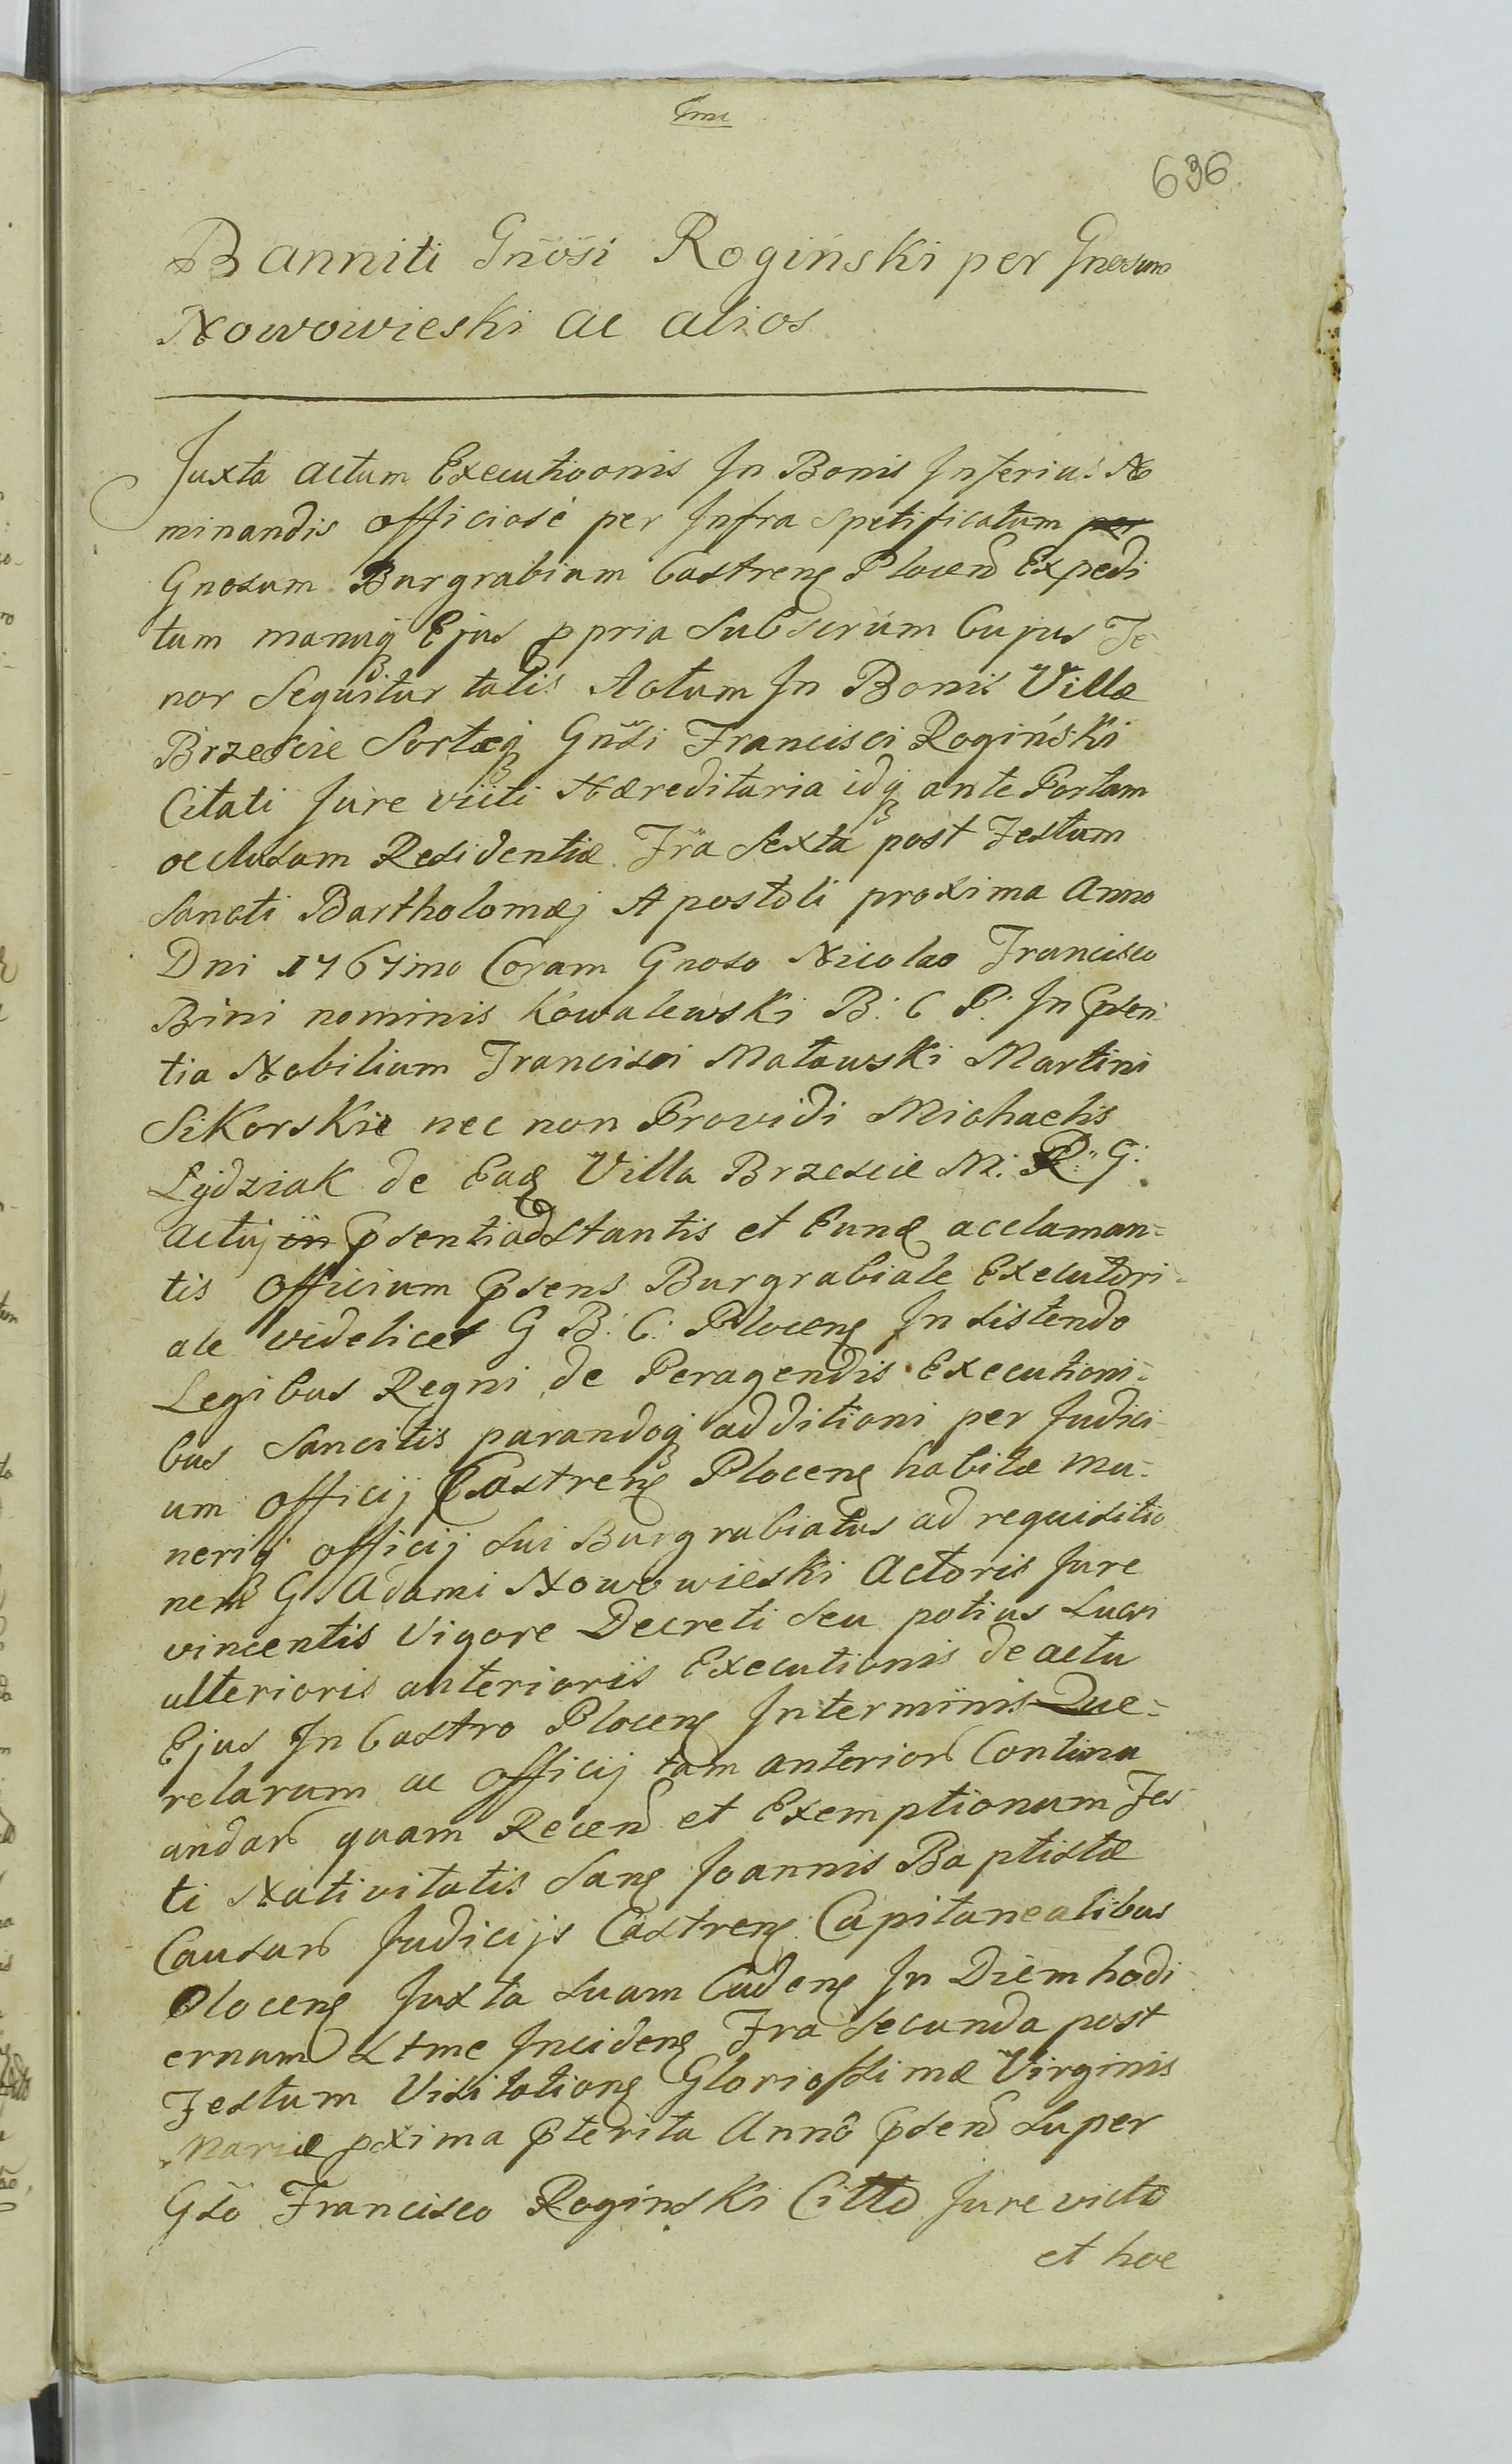 636
Banniti Gnösi Rogiński per Gnosum
Nowowieski ac alios
Juxta actum Executioonis In Bonis Inferius No
minandis officiosé per Infra Spetificatum per
Gnosum Burgrabium Castrenꝫ Plocenꝭ Expedi
tum manuqꝫ Ejus ꝓpria Subscrüm Cujus Te-
nor Sequitur talis Actum In Bonis Villæ
Brzescie Sortæqꝫ Gnősi Francisci Rogiński
Citati Jure viiti Hæreditaria idqꝫ ante Portam
occlusam Residentiæ Fra Sexta post Festum
Sancti Bartholomæj Apostoli proxima Anno
Dni 1767mo Coram Gnoso Nicolao Francisco
Bini nominis Kowalewski B: C P: In Pꝛsen-
tia Nobilium Francisci Matowski Martini
Sikorskie nec non Providi Michaelis
Lydziak de Eadꝫ Villa Brzescie M: R: G:
Actuj in Pꝛsenti adstantis et Eundꝫ acclaman=
tis Officium Pꝛsens Burgrabiale Executori=
ale videlicet G B: C: Plocenꝫ In Sistendo
Legibus Regni de Peragendis Executioni=
bus Sancitis parandoqꝫ additioni per Judici-
um Officij Castrenꝫ Plocenꝫ habitæ Mu-
neriqꝫ officij Sui Burgrabiatus ad requisitio
nem G Adami Nowowieski Actoris Jure
vincentis Vigore Decreti Seu potius Lucri
ulterioris anterioris Executionis de actu
Ejus In Castro Plocenꝫ In terminis Que=
relarum ac Officij tam anteriorꝭ Continu
andarꝭ quam Recenꝭ et Exemptionum Fes-
ti Nativitatis Sanꝫ Joannis Baptistæ
Causarꝭ Judicijs Castrenꝫ Capitanealibus
Plocenꝫ Juxta Suam Cadenꝫ In Diem hodi-
ernam Ltme Incidenꝫ Fra Secunda post
Festum Visitationꝫ Gloriossimæ Virginis
Mariæ ꝓxima Pꝛterita Annô Pꝛsenꝭ Super
Gso Francisco Roginski Citto Jure victo
et hoc